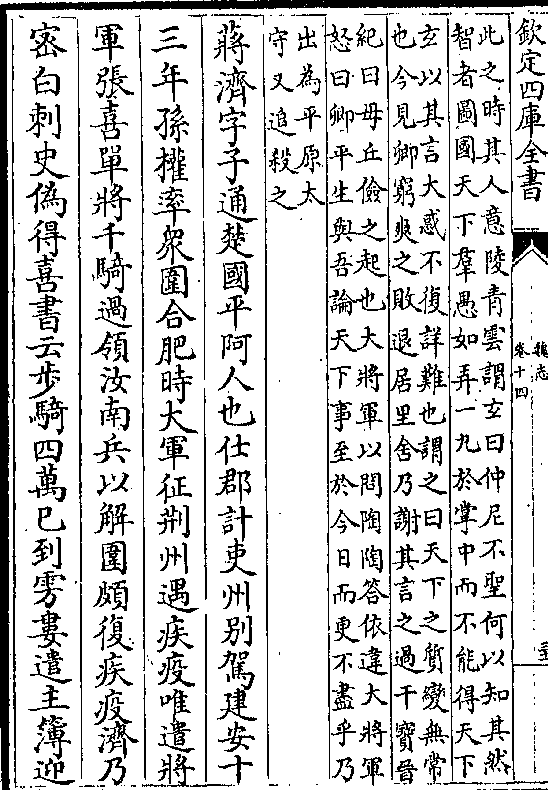 欽定四庫全書
魏志
卷十四
此之時其人意陵青雲謂玄曰仲尼不聖何以知其然
智者圖國天下羣愚如弄一丸於掌中而不能得天下
玄以其言大惑不復詳難也謂之曰天下之質變無常
也今見卿窮爽之敗退居里舍乃謝其言之過干寶晉
紀曰毋丘儉之起也大將軍以問陶陶答依違大將軍
怒曰卿平生與吾論天下事至於今日而更不盡乎乃
出為平原太
守又追殺之
蔣濟字子通楚國平阿人也仕郡計吏州別駕建安十
三年孫權率衆圍合肥時大軍征荆州遇疾疫唯遣將
軍張喜單將千騎過領汝南兵以解圍頗復疾疫濟乃
宻白刺史偽得喜書云步騎四萬已到雩婁遣主簿迎